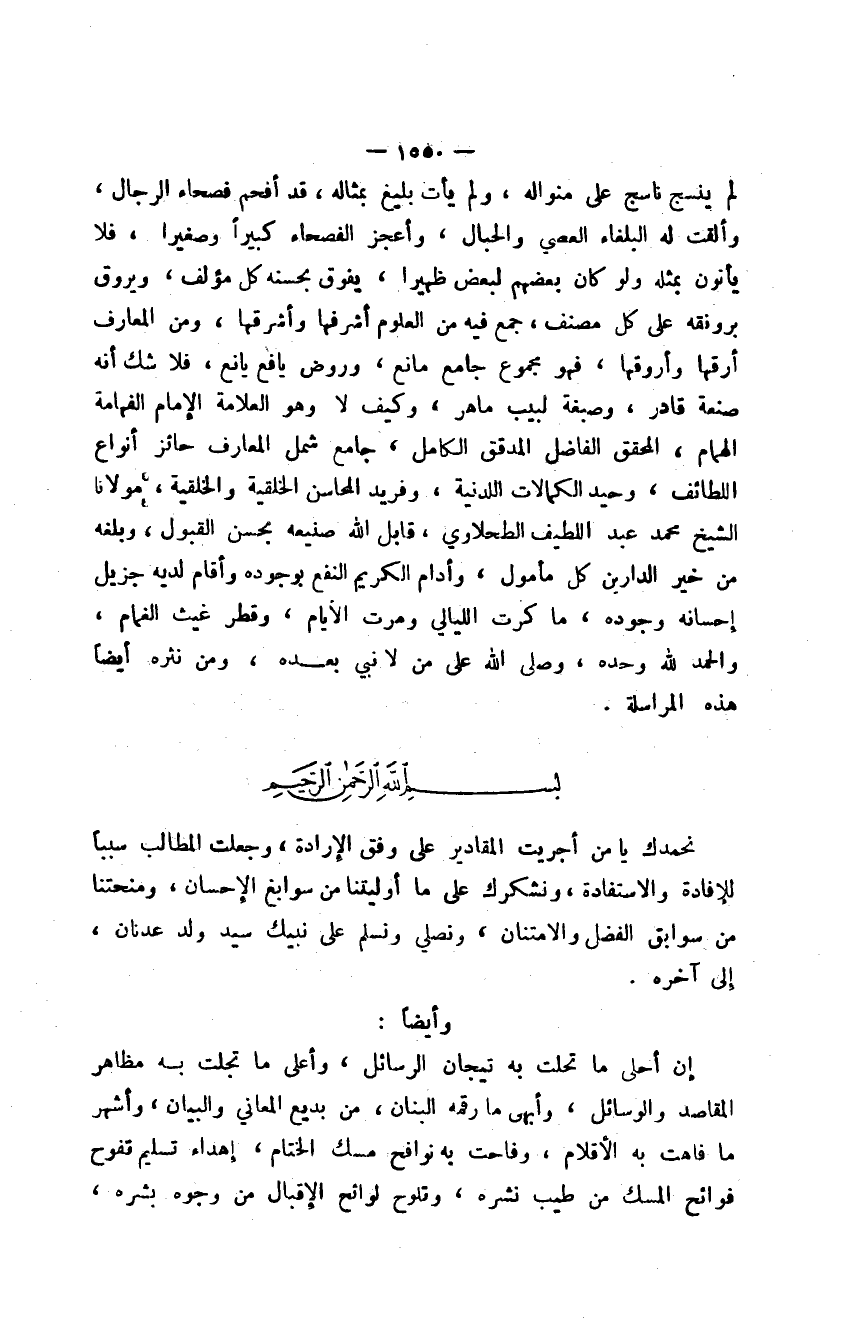 — ١٥٥٠ —
لم ينسج ناسج على منواله ، ولم يأت بليغ بمثاله ، قد أفحم فصحاء الرجال ،
وألقت له البلغاء العصي والحبال ، وأعجز الفصحاء كبيراً وصغيرا ، فلا
يأتون بمثله ولو كان بعضهم لبعض ظهيرا ، يفوق بحسنه كل مؤلف ، ويروق
برونقه على كل مصنف ، جمع فيه من العلوم أشرفها وأشرقها ، ومن المعارف
أرقها وأروقها ، فهو مجموع جامع مانع ، وروض يافع يانع ، فلا شك أنه
صنعة قادر ، وصبغة لبيب ماهر ، وكيف لا وهو العلامة الإمام الفهامة
الهمام ، المحقق الفاضل المدقق الكامل ، جامع شمل المعارف حائز أنواع
اللطائف ، وحيد الكمالات اللدنية ، وفريد المحاسن الخلقية والخلقية ، مولانا
الشيخ محمد عبد اللطيف الطحلاوي ، قابل الله صنيعه بحسن القبول ، وبلغه
من خير الدارين كل مأمول ، وأدام الكريم النفع بوجوده وأقام لديه جزيل
إحسانه وجوده ، ما كرت الليالي ومرت الأيام ، وقطر غيث الغمام ،
والحمد لله وحده ، وصلى الله على من لا نبي بعـــده ، ومن نثره أيضاً
هذه المراسلة .
بسم الله الرحمن الرحيم
نحمدك يا من أجريت المقادير على وفق الإرادة ، وجعلت المطالب سبباً
للإفادة والاستفادة ، ونشكرك على ما أوليتنا من سوابغ الإحسان ، ومنحتنا
من سوابق الفضل والامتنان ، ونصلي ونسلم على نبيك سيد ولد عدنان ،
إلى آخره .
وأيضاً :
إن أحلى ما تحلت به تيجان الرسائل ، وأعلى ما تجلت بـه مظاهر
المقاصد والوسائل ، وأبهى ما رقمه البنان ، من بديع المعاني والبيان ، وأشهر
ما فاهت به الأقلام ، وفاحت به نوافح مسك الختام ، إهداء تسليم تفوح
فوائح المسك من طيب نشره ، وتلوح لوائح الإقبال من وجوه بشره ،